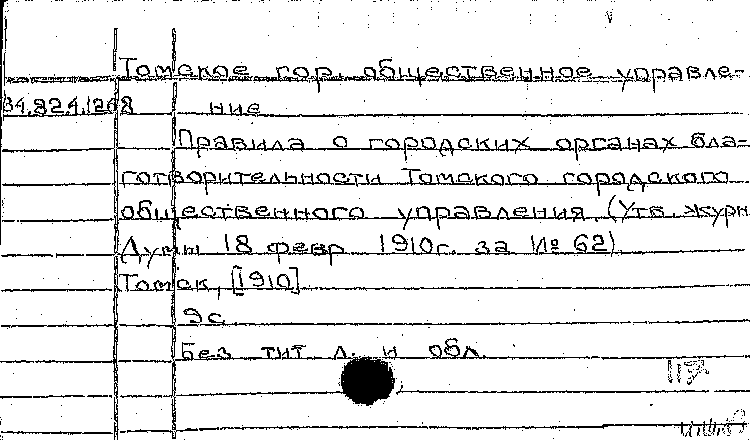 Томское гор. общественное управле-
34.824.1268 ние
Правила о городских органах бла-
готворительности Томского городского
общественного управления. (Утв. журн
Думы 18 февр 1910г. за № 62).
Томск, [1910].
9с.
Без тит л. и обл.